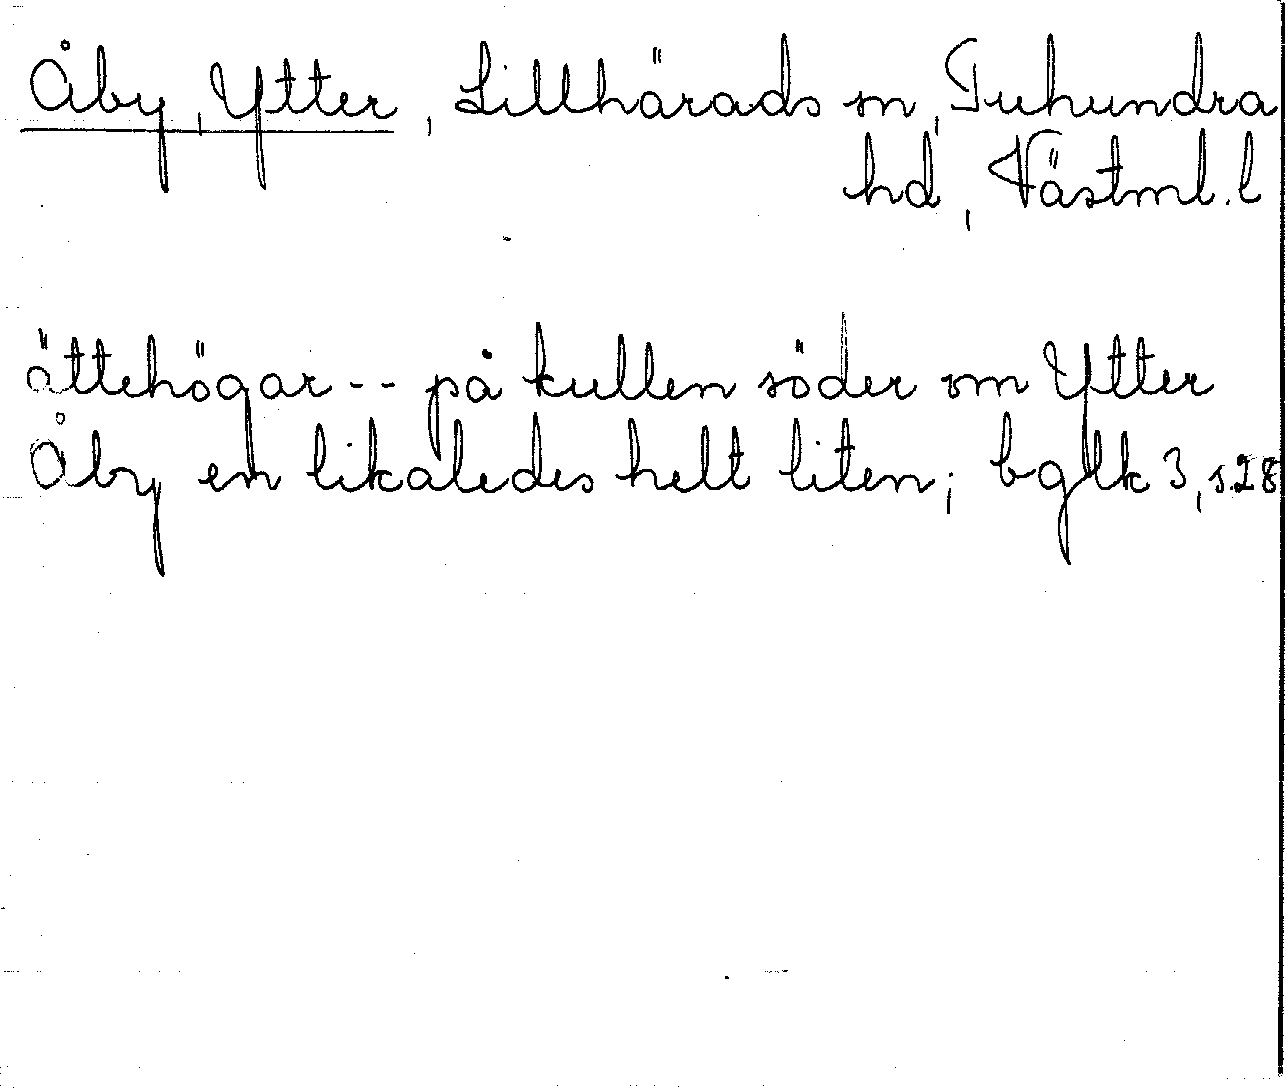 Åby, Ytter, Lillhärads sn, Tuhundra
hd, Västml. l
ättehögar -- på kullen söder om Ytter
Åby en likaledes helt liten; bglk 3, s. 28